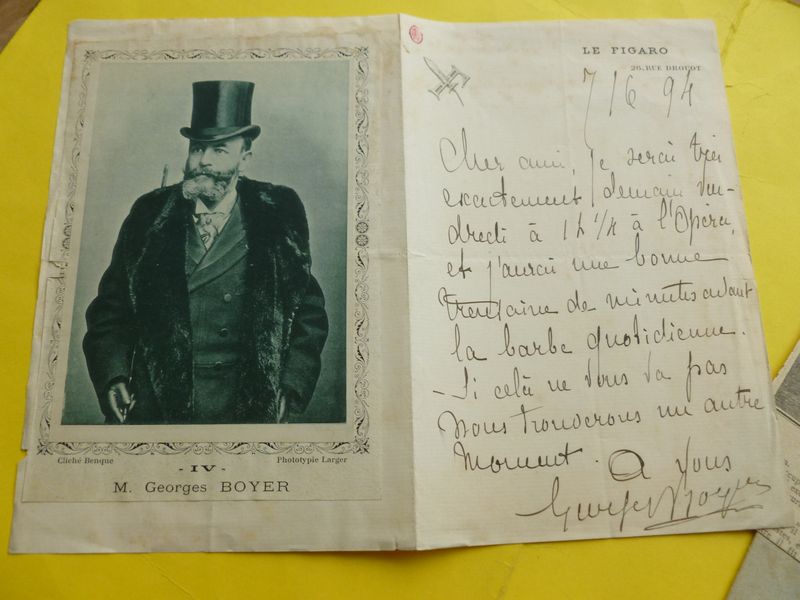 Cliché Benque
Phototypie Larger
- IV -
M. Georges BOYER
LE FIGARO
26, RUE DROUOT
7/6 94
Cher ami, je serai très
exactement demain ven-
dredi à 1h 1/4 à l'Opéra,
et j'aurai une bonne
trentaine de minutes avant
la barbe quotidienne.
- Si celà ne vous va pas
nous trouverons un autre
moment. A vous
Georges Boyer